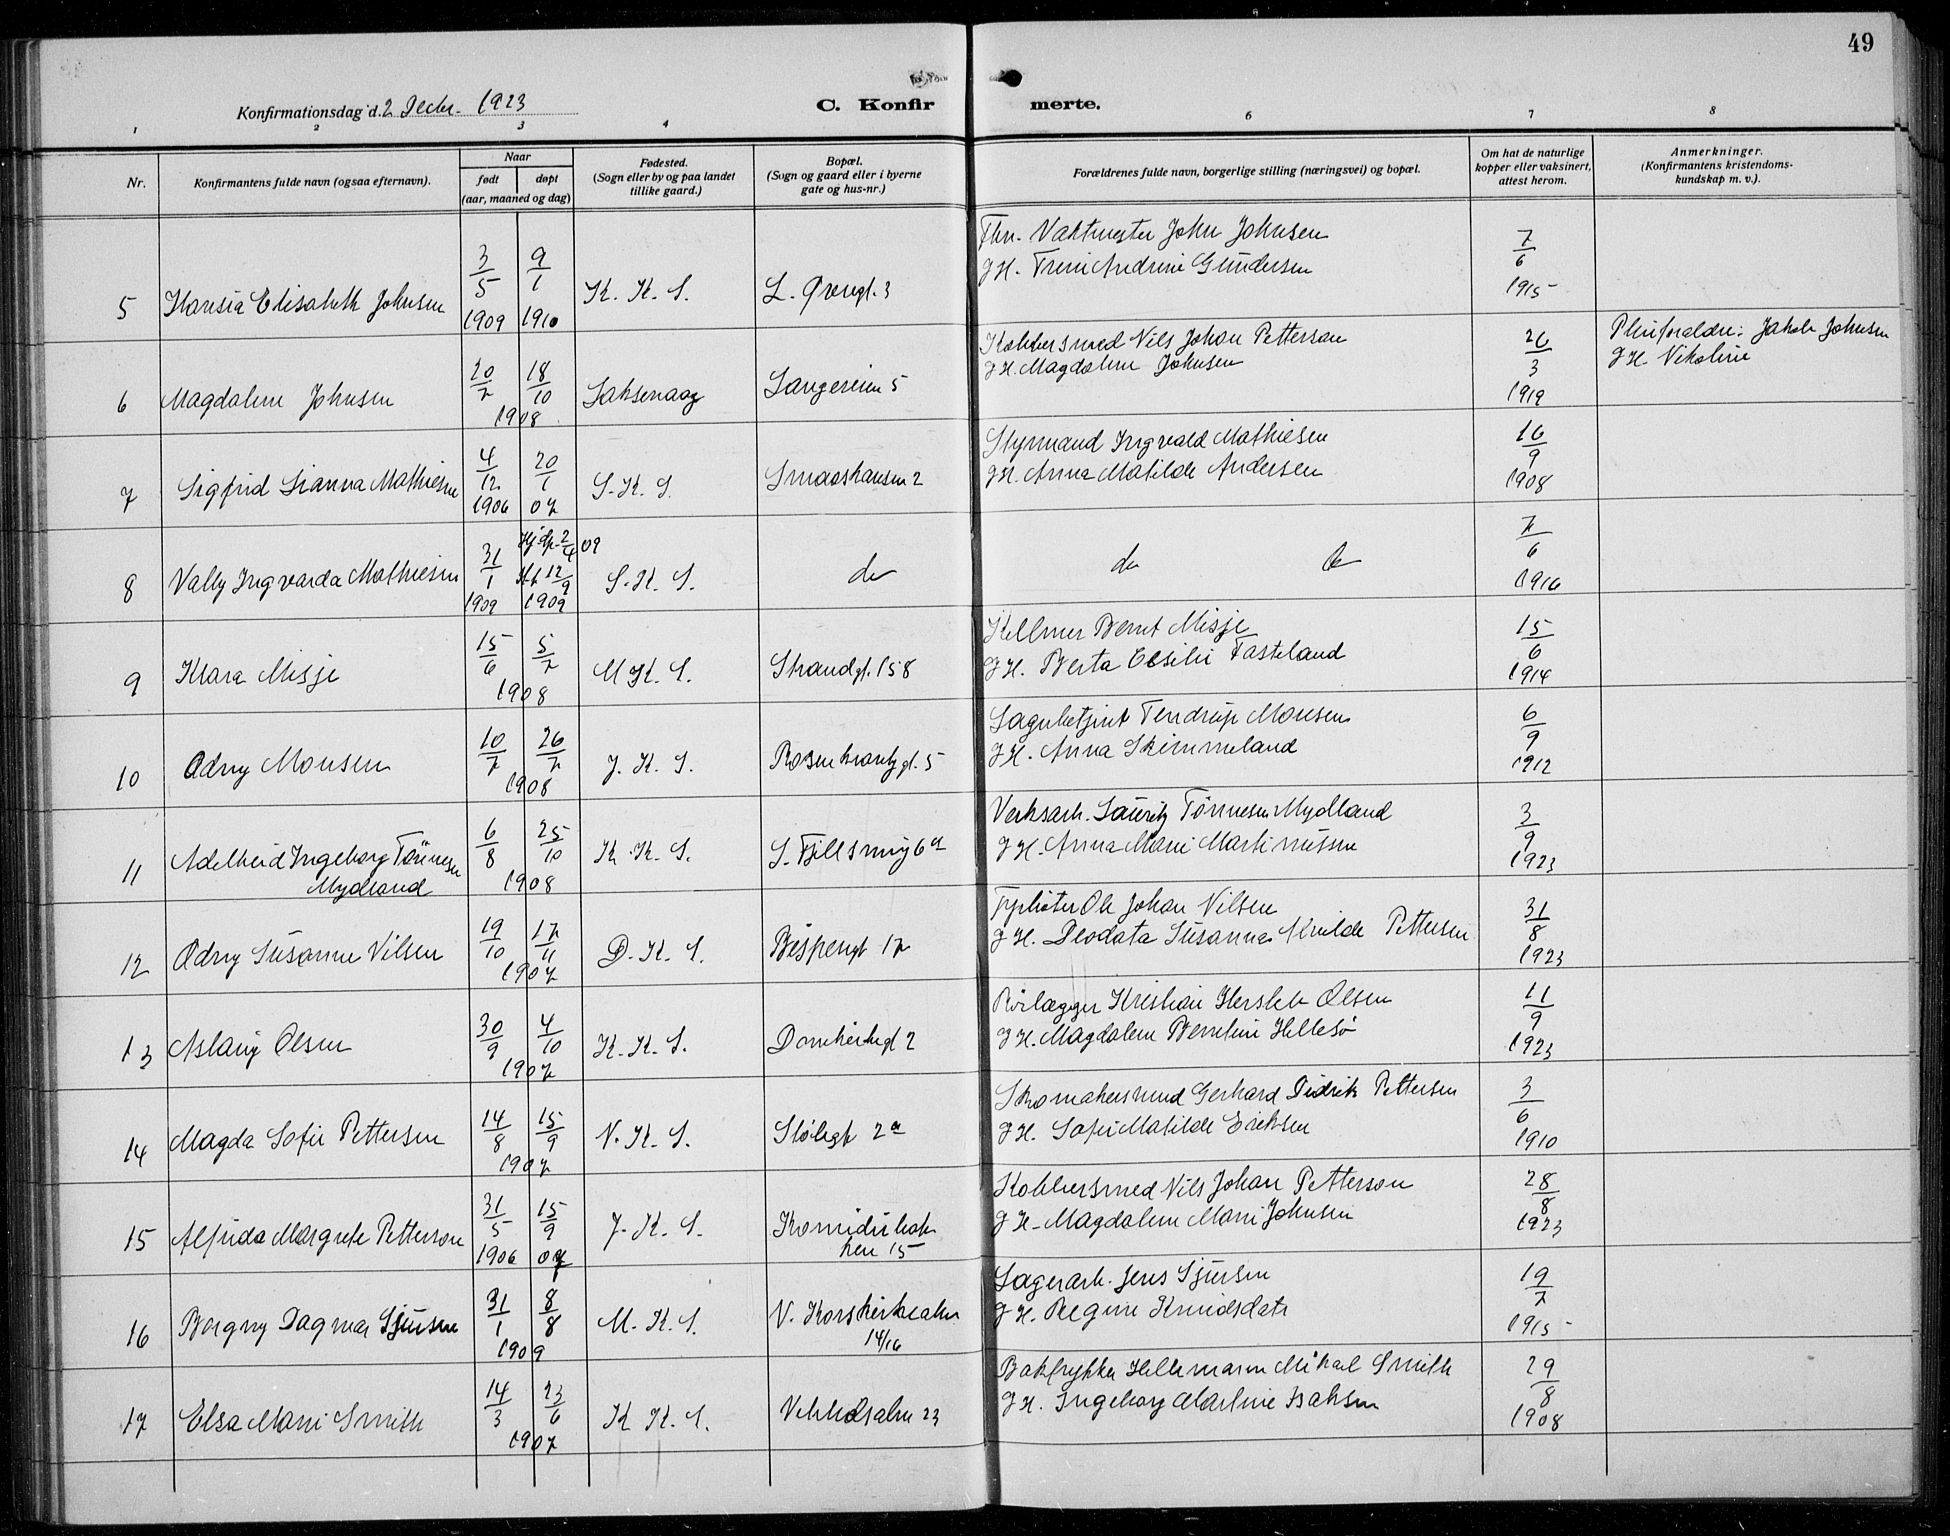 49
Konfirmationsdag d. 2 Decbr. 1923
C. Konfir merte.
1 2 3 4 6 7 8
Nr.
Konfirmantens fulde navn (ogsaa efternavn).
Naar
født
døpt
(aar, maaned og dag)
Fødested.
(Sogn eller by og paa landet
tillike gaard.)
Bopæl.
(Sogn og gaard eller i byerne
gate og hus-nr.)
Forældrenes fulde navn, borgerlige stilling (næringsvei) og bopæl.
Om hat de naturlige
kopper eller vaksinert,
attest herom.
Anmerkninger.
(Konfirmantens kristendoms-
kundskap m. v.).
Fhv. Vaktmester John Johnsen
5 Elisabeth Johnsen 3/5 1909 9/1 1910 K. K. S. 7/6 1915
G H. Andrine Gundersen
Kobbersmed Nils Johan Petterson
6 Magdalene Johnsen 20/7 18/10 1908 Laksevaag 5 26/3 1919 Pleieforældre: Jakob Johnsen
G H. Magdalene Johnsen
G H. Nikoline
Styrmand Ingvald Mathiesen
7 Sigfrid Lianna Mathiesen 4/12 1906 20/1 07 S. K. S. 2 16/9 1908
G H. Anna Matilde Andersen
8 Vally Ingvarda Mathiesen 31/1 1909 Hj.dp. 2/4 09 12/9 1909 S. K. S. do do do 7/6 1916
Kellner Bernt Misje
9 Klara Misje 15/6 5/7 1908 M K. S. Strandgt. 158 15/6 1914
G H. Berta Tasteland
Monsen
10 Odny Monsen 10/7 26/7 1908 J. K. S. Rosenkrantzgt. 5 6/9 1912
G H. Anna Skimmeland
Verksarb. Lauritz Tönnesen Mydland
11 Adelheid Ingeborg Tönnesen
Mydland 6/8 25/10 1908 K. K. S. 6a 3/9 1923
G H. Anna Marie Martinussen
Ole Johan Nilsen
12 Odny Susanne Nilsen 19/10 17/11 1907 D. K. S. Bispengt 17 31/8 1923
G H. Deodata Susanna Pettersen
Rörlægger Kristian Olsen
13 Aslaug Olsen 30/9 4/10 1907 K. K. S. Domkirkegt 2 11/9 1923
G H. Magdalene Berntine Hellesö
Skomakersvend Gerhard Didrik Pettersen
14 Magda Sofie Pettersen 14/8 15/9 1907 N. K. S. Stölegt 2a 3/6 1910
G H. Sofie Matilde Eriksen
Kobbersmed Nils Johan Petterson
15 Alfrida Margrete Petterson 31/5 1906 15/9 07 J. K. S. Komediebak-
ken 15 28/8 1923
G H. Magdalene Marie Johnsen
Lagerarb. Jens Sjursen
16 Borgny Dagmar Sjursen 31/1 8/8 1909 M. K. S. V. Korskirkealm
14/16 19/7 1915
G H. Regine Knudsdatr
Mikael Smith
17 Elsa Marie Smith 14/3 23/6 1907 K K. S. 23 29/8 1908
G H. Ingeborg Martine Isaksen